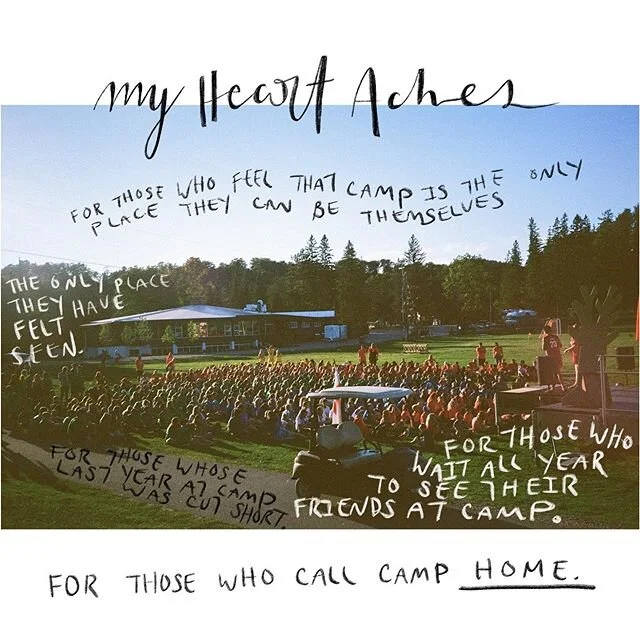 my Heart Aches
FOR THOSE WHO FEEL THAT CAMP IS THE ONLY
PLACE THEY CAN BE THEMSELVES
THE ONLY PLACE
THEY HAVE
FELT
SEEN.
FOR THOSE WHOSE
LAST YEAR AT CAMP
WAS CUT SHORT.
FOR THOSE WHO
WAIT ALL YEAR
TO SEE THEIR
FRIENDS AT CAMP.
FOR THOSE WHO CALL CAMP HOME.